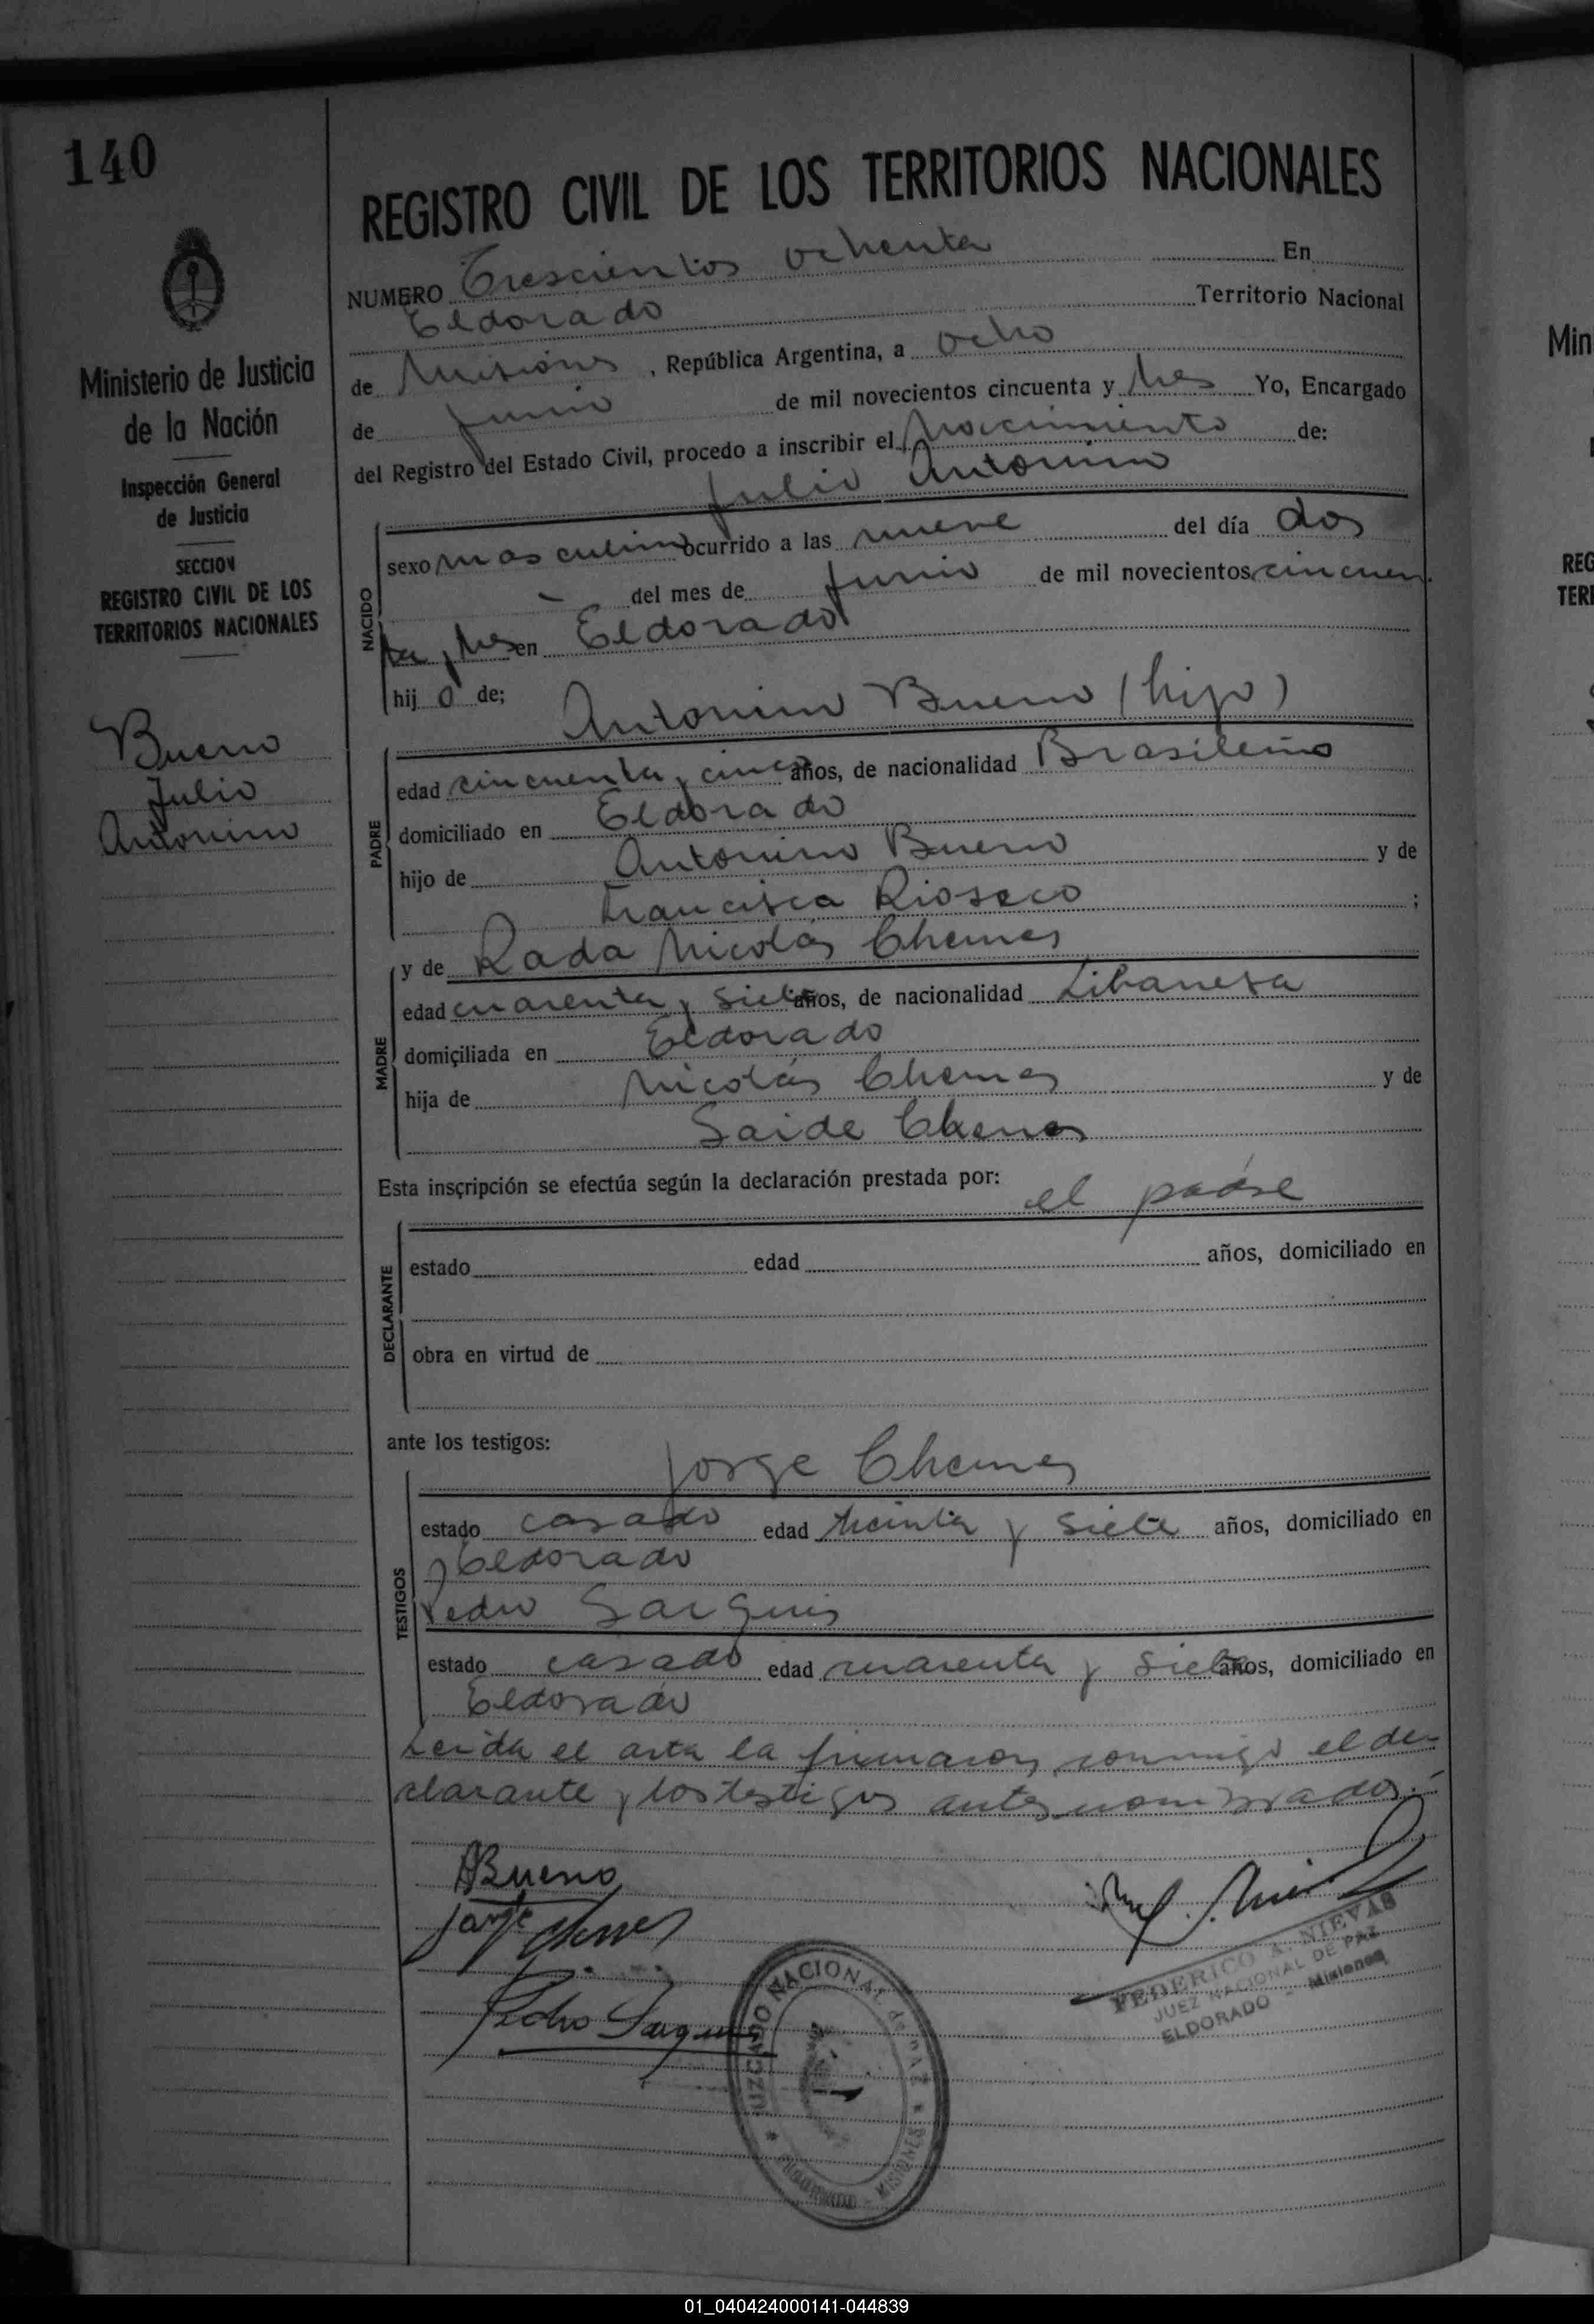 140
REGISTRO CIVIL DE LOS TERRITORIOS NACIONALES
NUMERO Trescientos ochenta En
Eldorado Territorio Nacional
de Misiones, República Argentina, a ocho
de Junio de mil novecientos cincuenta y tres Yo, Encargado
del Registro del Estado Civil, procedo a inscribir el Nacimiento de:
Julio Antonino
Ministerio de Justicia
de la Nación
Inspección General
de Justicia
SECCION
REGISTRO CIVIL DE LOS
TERRITORIOS NACIONALES
Bueno
Julio
Antonino
NACIDO
sexo masculino ocurrido a las nueve del día dos
— del mes de Junio de mil novecientos cincuen
ta y tres en Eldorado
hij o de;
Antonino Bueno (hijo)
PADRE
edad cincuenta y cinco años, de nacionalidad Brasileño
domiciliado en Eldorado
hijo de Antonino Bueno y de
Francisca Rioseco ;
y de Rada Nicolás Chemes
MADRE
edad cuarenta y siete años, de nacionalidad Libanesa
domiciliada en Eldorado
hija de Nicolás Chemes y de
Saide Chemes
Esta inscripción se efectúa según la declaración prestada por:
el padre
DECLARANTE
estado edad años, domiciliado en
obra en virtud de
ante los testigos:
Jorge Chemes
TESTIGOS
estado casado edad treinta y siete años, domiciliado en
Eldorado
Pedro Sarquis
estado casado edad cuarenta y siete años, domiciliado en
Eldorado
Leida el acta la firmaron conmigo el de-
clarante y los testigos antes nombrados.-
ABueno
Jorge Chemes
Pedro Sarquis
FEDERICO A. NIEVAS
JUEZ NACIONAL DE PAZ
ELDORADO - Misiones
JUZGADO NACIONAL de PAZ * ELDORADO - MISIONES *
Min
REG
TERR
01_040424000141-044839